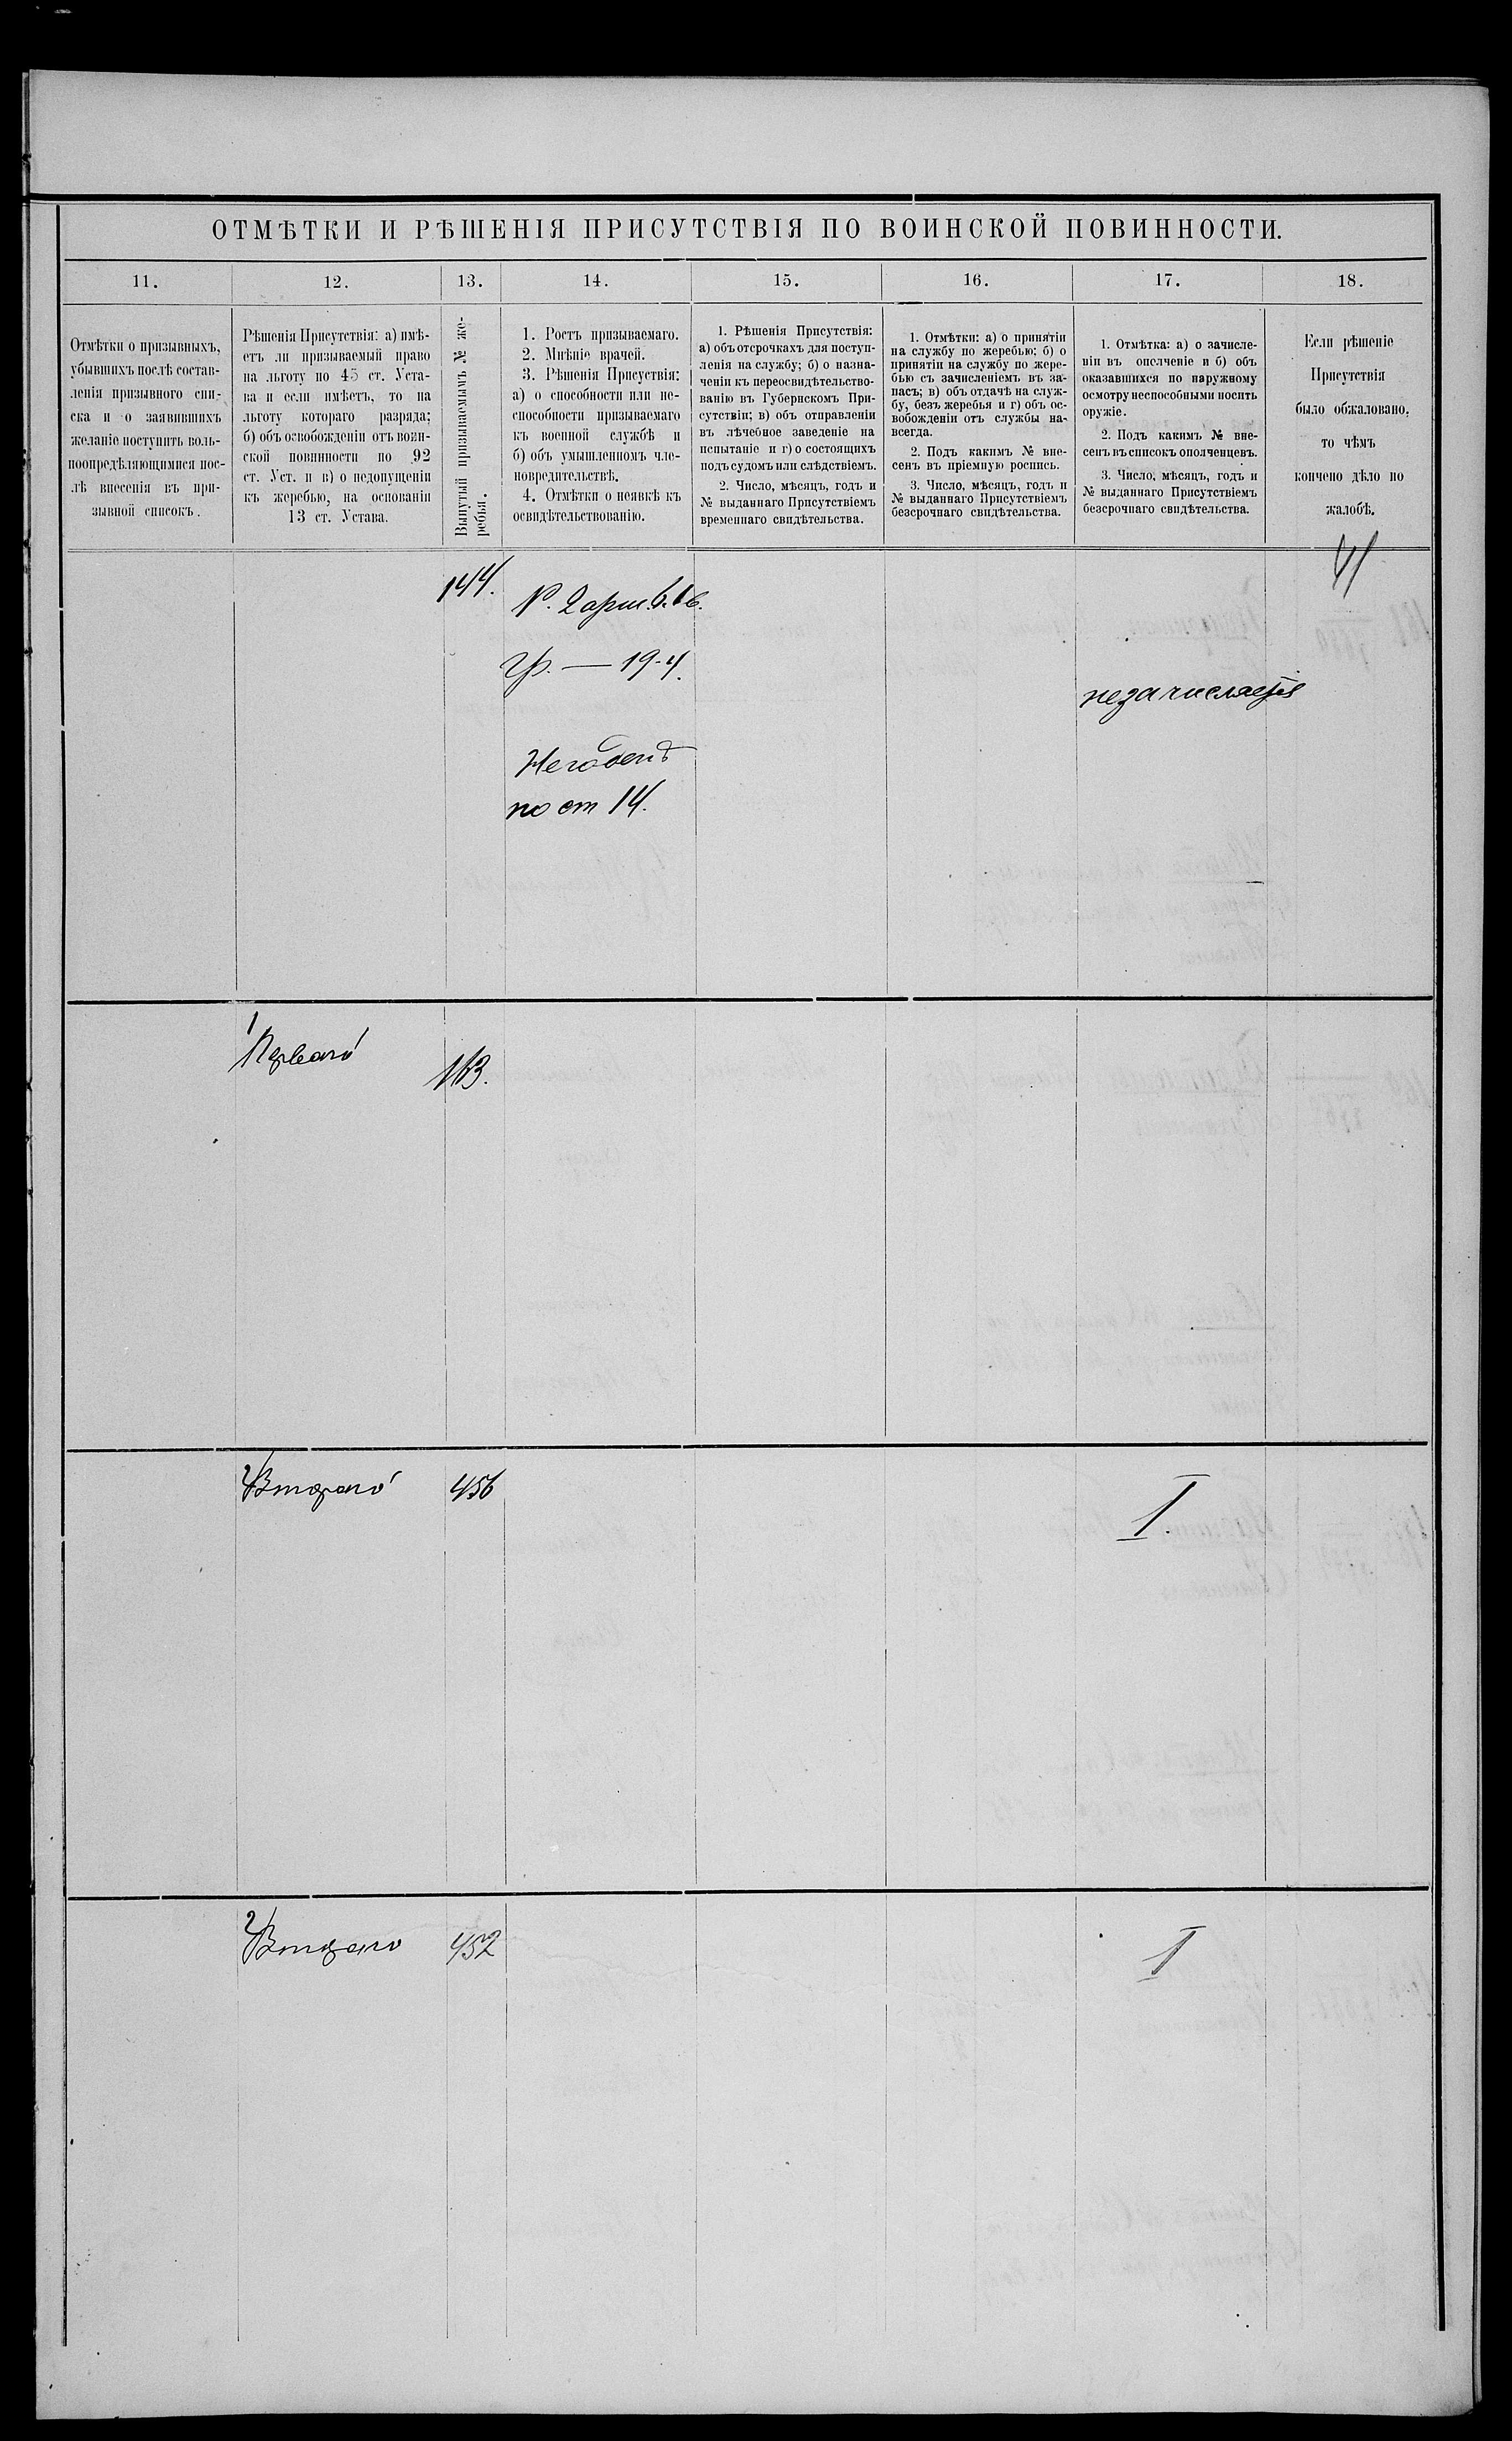 ОТМѢТКИ И РѢШЕНІЯ ПРИСУТСТВІЯ ПО ВОИНСКОЙ ПОВИННОСТИ.
11. 12. 13. 14. 15. 16. 17. 18.
Отмѣтки о призывныхъ,
убывшихъ послѣ состав-
ленія призывного спи-
ска и о заявившихъ
желаніе поступить воль-
ноопредѣляющимися пос-
лѣ внесенія въ при-
зывной списокъ.
Рѣшенія Присутствія: а) имѣ-
етъ ли призываемый право
на льготу по 45 ст. Уста-
ва и если имѣетъ, то на
льготу котораго разряда;
б) объ освобожденіи отъ воин-
ской повинности по 92
ст. Уст. и в) о недопущеніи
къ жеребью, на основаніи
13 ст. Устава.
Вынутый призываемымъ № же-
ребья.
1. Ростъ призываемаго.
2. Мнѣніе врачей.
3. Рѣшенія Присуствія:
а) о способности или не-
способности призываемаго
къ военной службѣ и
б) объ умышленномъ чле-
новредительствѣ.
4. Отмѣтки о неявкѣ къ
освидѣтельствованію.
1. Рѣшенія Присутствія:
а) объ отсрочкахъ для поступ-
ленія на службу; б) о назна-
ченіи къ переосвидѣтельство-
ванію въ Губернскомъ При-
сутствіи; в) объ отправленіи
въ лѣчебное заведеніе на
испытаніе и г) о состоящихъ
подъ судомъ или слѣдствіемъ.
2. Число, мѣсяцъ, годъ и
№ выданнаго Присутствіемъ
временнаго свидѣтельства.
1. Отмѣтки: а) о принятіи
на службу по жеребью; б) о
принятіи на службу по жере-
бью съ зачисленіемъ въ за-
пасъ; в) объ отдачѣ на служ-
бу, безъ жеребья и г) объ ос-
вобожденіи отъ службы на-
всегда.
2. Подъ какимъ № вне-
сенъ въ пріемную роспись.
3. Число, мѣсяцъ, годъ и
№ выданнаго Присутствіемъ
безсрочнаго свидѣтельства.
1. Отмѣтка: а) о зачисле-
ніи въ ополченіе и б) объ
оказавшихся по наружному
осмотру неспособными носить
оружіе.
2. Подъ какимъ № вне-
сенъ въ списокъ ополченцевъ.
3. Число, мѣсяцъ, годъ и
№ выданнаго Присутствіемъ
безсрочнаго свидѣтельства.
Если рѣшеніе
Присутствія
было обжаловано,
то чѣмъ
кончено дѣло по
жалобѣ.
144.
Р. 2 арш. 6. 1 в.
Гр. — 19-4.
Негоденъ
по ст 14.
незачисляется
1
Перваго
163.
2
Втораго
456
I.
2
Втораго
452
I